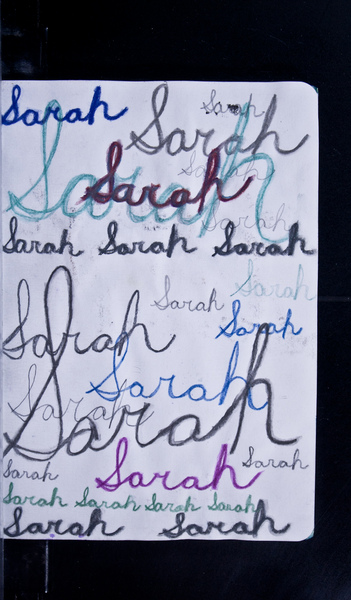 Sarah
Sarah
Sarah
Sarah
Sarah
Sarah
Sarah
Sarah Sarah Sarah
Sarah
Sarah
Sarah
Sarah
Sarah
Sarah
Sarah
Sarah
Sarah
Sarah
Sarah Sarah Sarah Sarah
Sarah Sarah